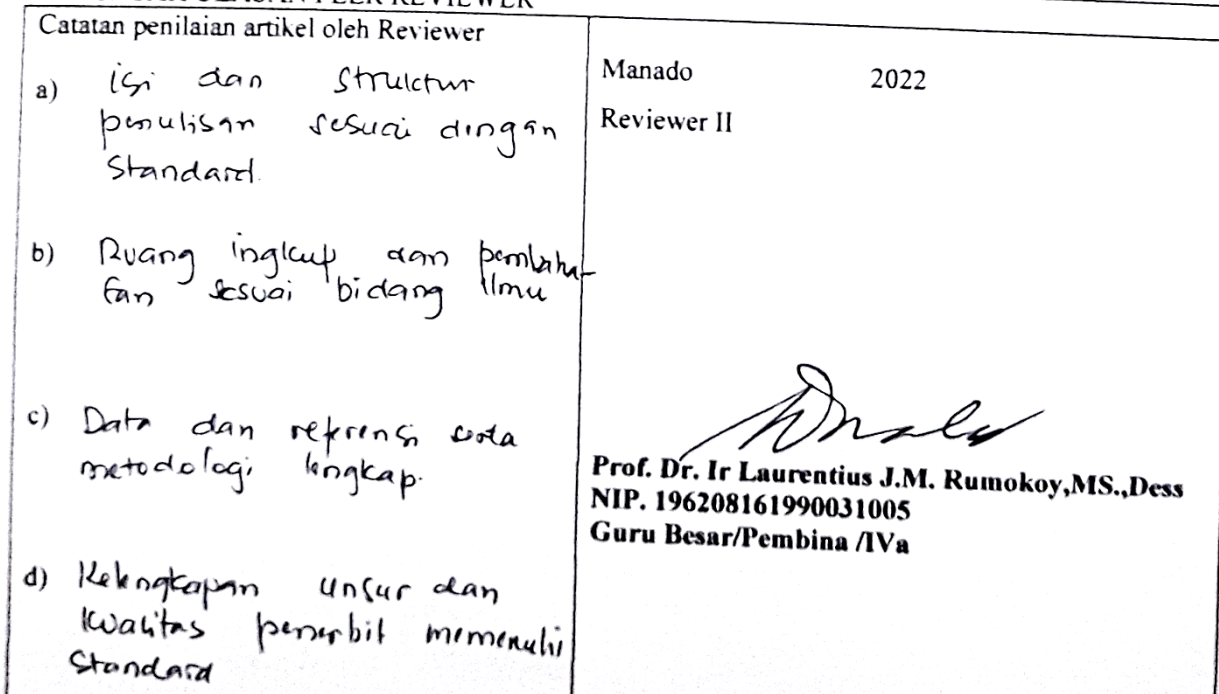 ULASAN PEER REVIEWER
Catatan penilaian artikel oleh Reviewer
a) isi dan Struktur
penulisan sesuai dengan
Standard.
b) Ruang ingkup dan pembaha-
san sesuai bidang ilmu
c) Data dan referensi serta
metodologi lengkap.
d) Kelengkapan unsur dan
kwalitas penerbit memenuhi
Standard
Manado 2022
Reviewer II
Prof. Dr. Ir Laurentius J.M. Rumokoy,MS.,Dess
NIP. 196208161990031005
Guru Besar/Pembina /IVa